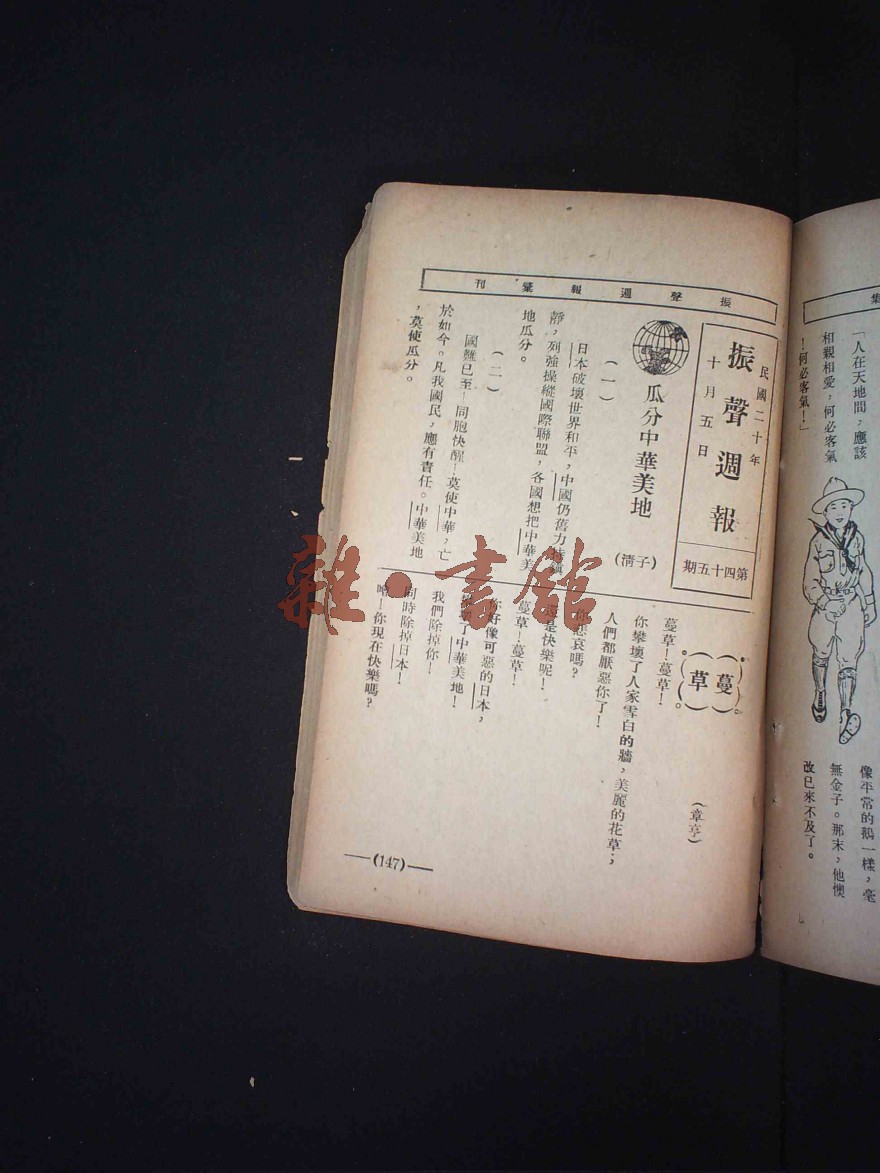 「人在天地間,應該
相親相愛,何必客氣
!何必客氣!」
像平常的鵝一樣,毫
無金子。那末,他懊
改已來不及了。
集
刊彙報週聲振
民國二十年
振聲週報
十月五日
期五十四第
瓜分中華美地
(子清)
(一)
日本破壞世界和平,中國仍舊力持鎮
靜,列強操縱國際聯盟,各國想把中華美
地瓜分。
(二)
國難已至!同胞快醒!莫使中華,亡
於如今。凡我國民,應有責任。中華美地
,莫使瓜分。
蔓草
(章亨)
蔓草!蔓草!
你攀壞了人家雪白的牆,美麗的花草;
人們都厭惡你了!
你悲哀嗎?
還是快樂呢!
蔓草!蔓草!
你好像可惡的日本,
了中華美地!
我們除掉你!
同時除掉日本!
!你現在快樂嗎?
(147)
雜·書館